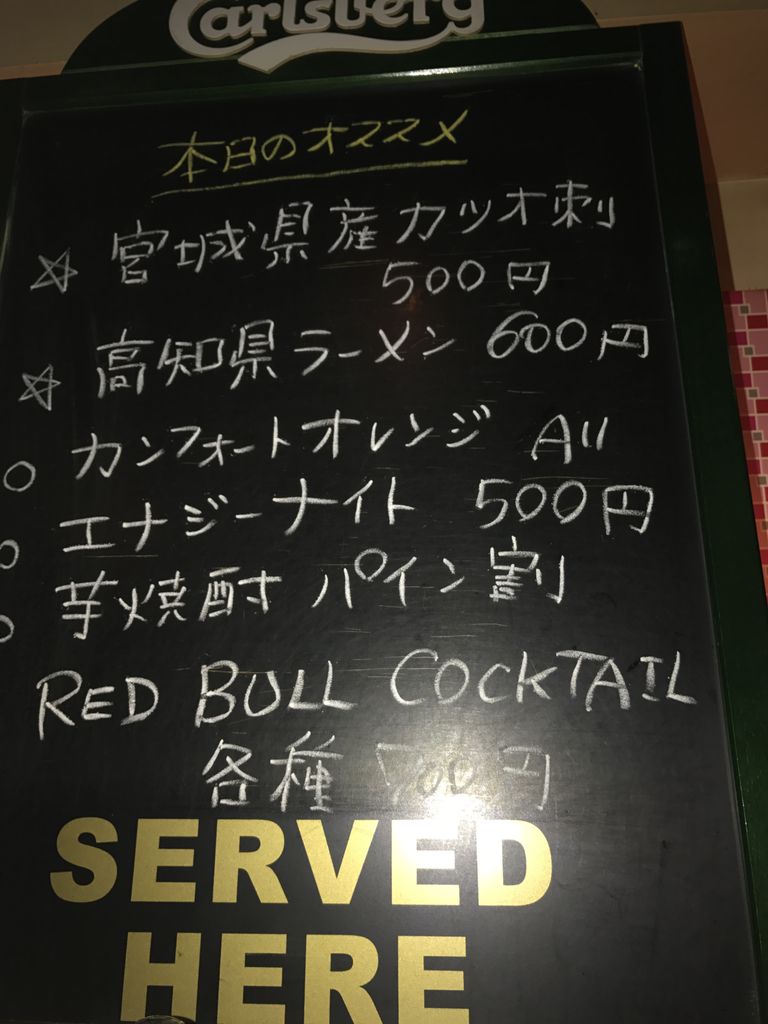 Carlsberg
本日のオススメ
☆ 宮城県産カツオ刺
500円
☆ 高知県ラーメン 600円
○ カンフォートオレンジ All
○ エナジーナイト 500円
○ 芋焼酎パイン割
RED BULL COCKTAIL
各種 700円
SERVED
HERE